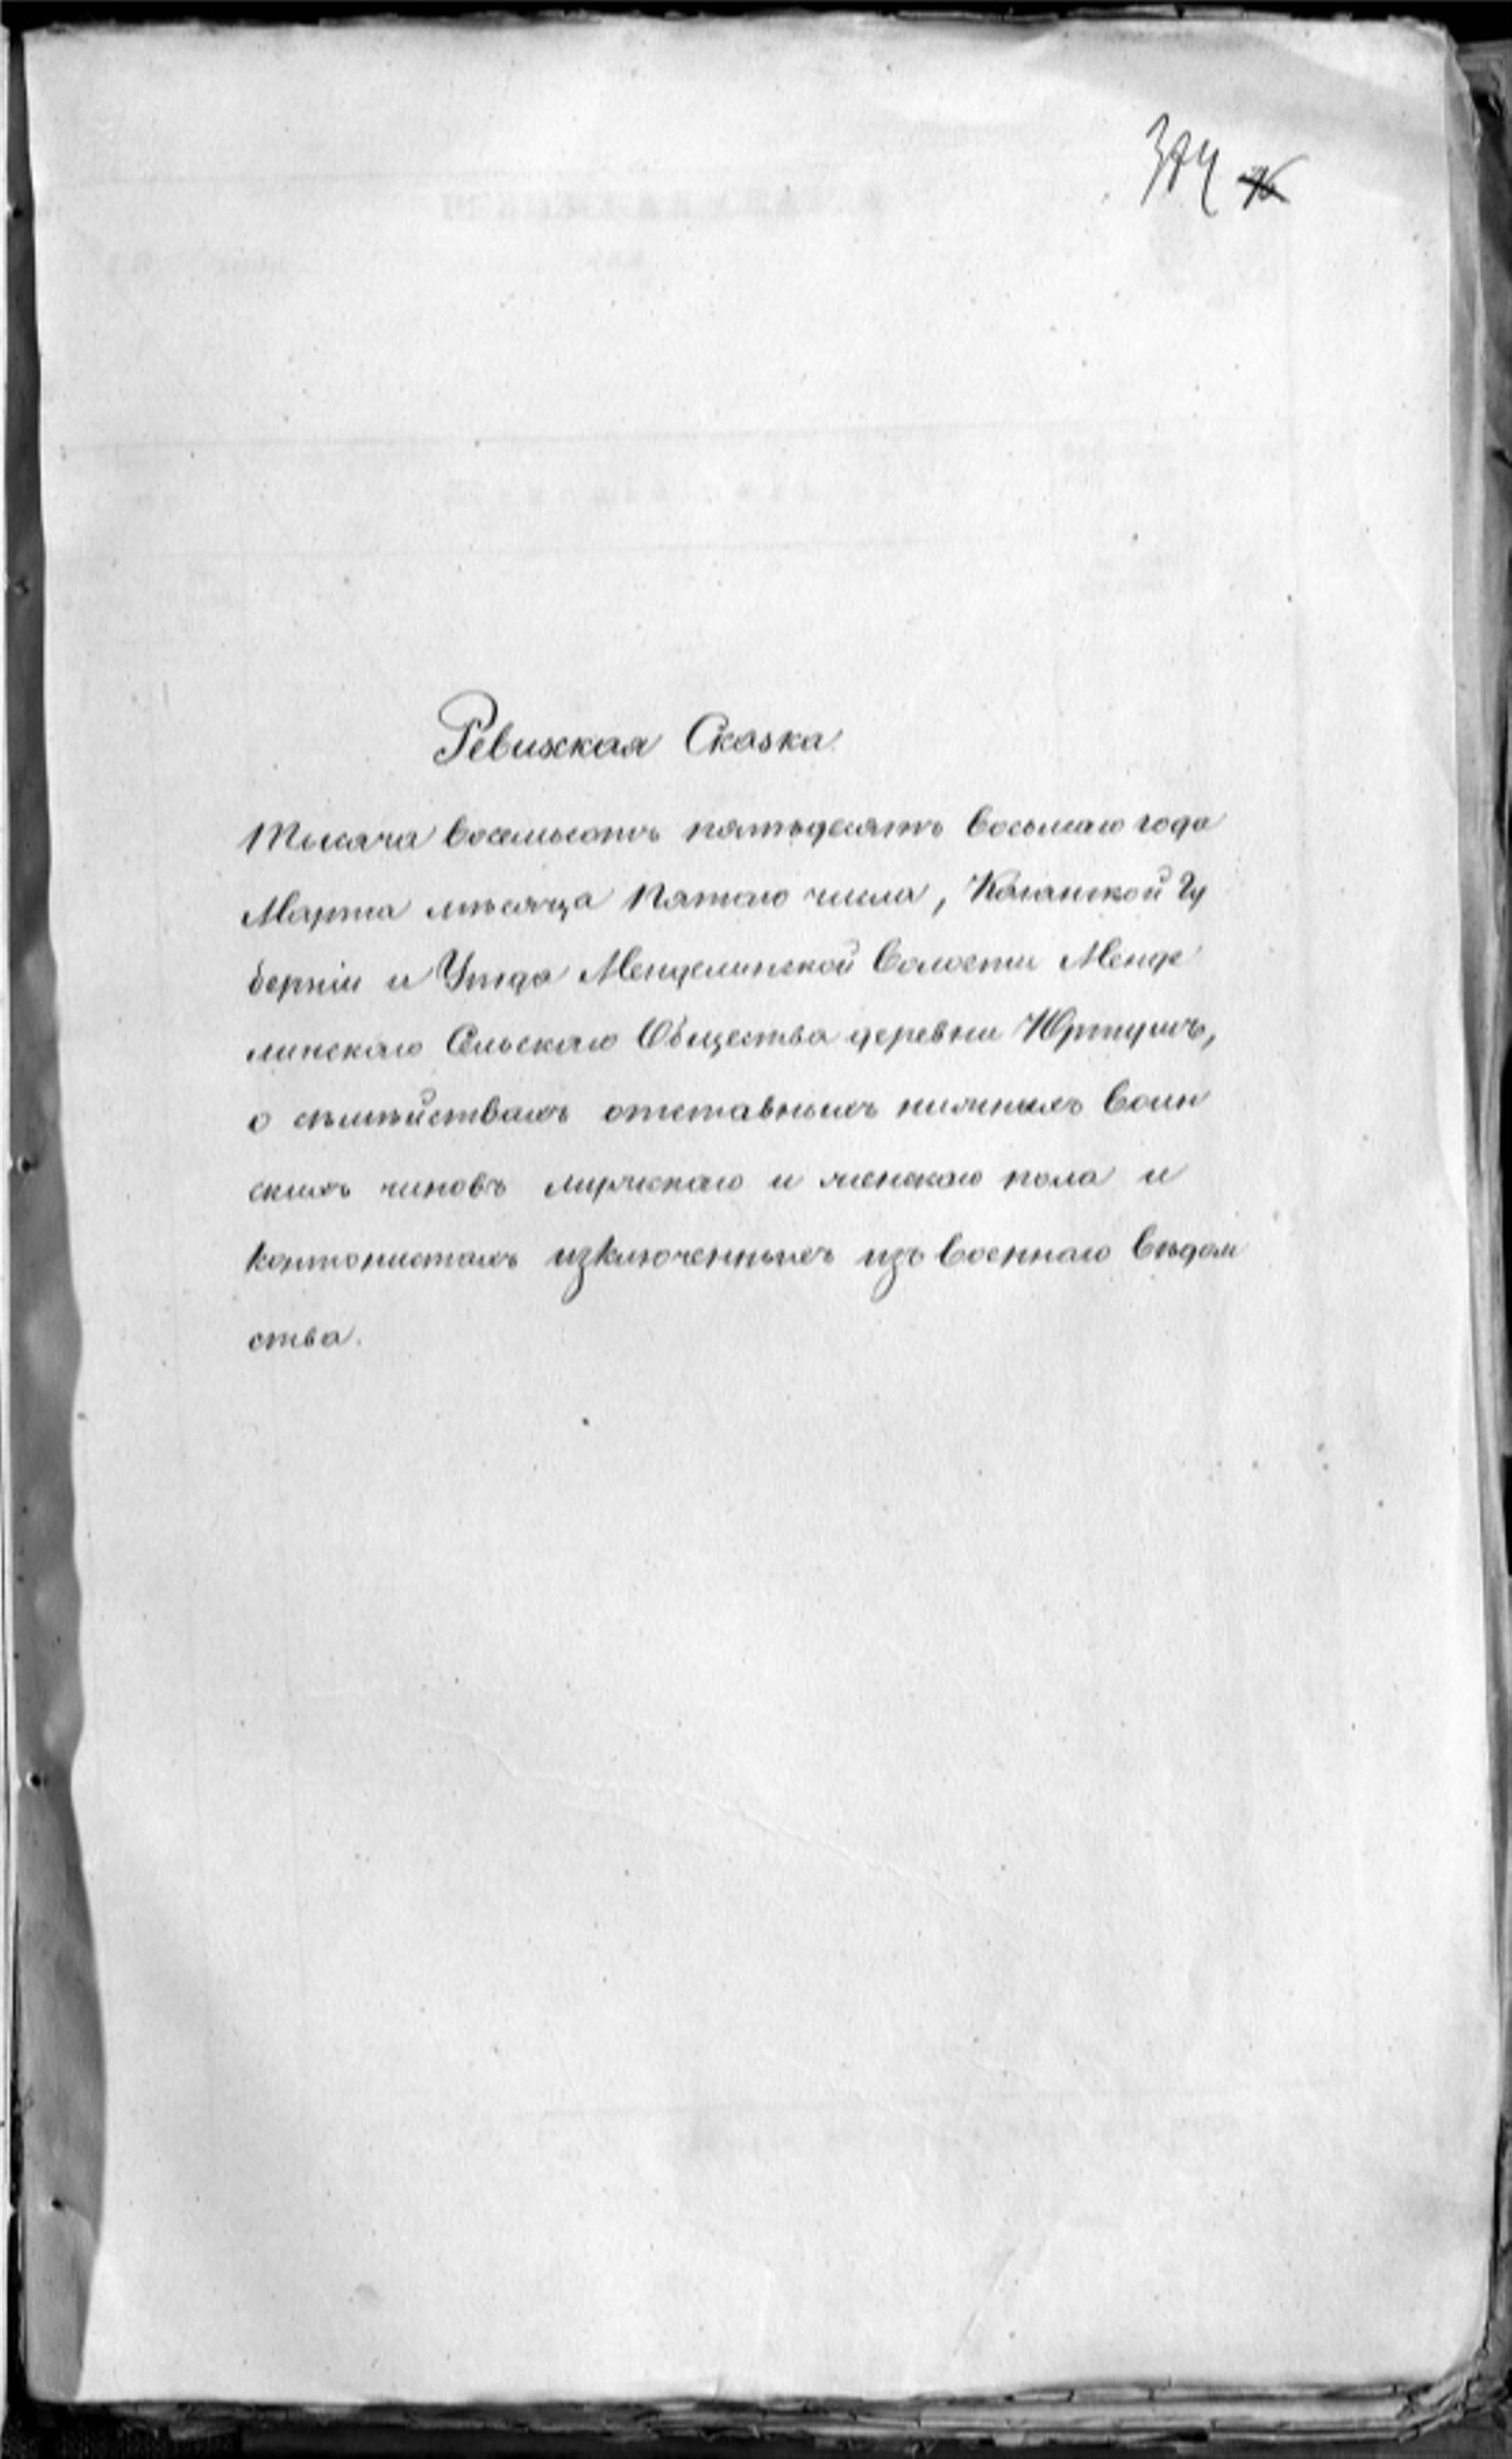 374
Ревижская Сказка.
Тысяча восемьсотъ пятьдесятъ восьмаго года
Марта мѣсяца Пятаго числа, Казанской Гу
берніи и Уѣзда Менделинской Волости Менде
линскаго Сельскаго Общества деревни Юртушъ,
о сѣмѣйствахъ отставныхъ нижнихъ воин
скихъ чиновъ мужскаго и женскаго пола и
кантонистахъ изключенныхъ изъ военнаго вѣдом
ства.